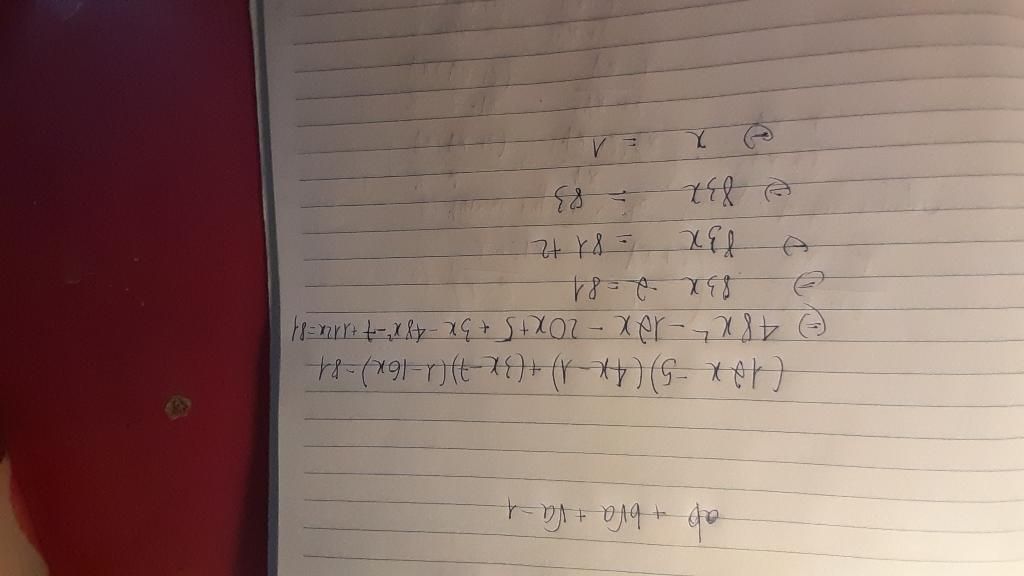 ab + b√a + √a - 1
(12x - 5)(4x - 1) + (3x - 7)(1 - 16x) = 81
⇔ 48x² - 12x - 20x + 5 + 3x - 48x² - 7 + 112x = 81
⇔ 83x - 2 = 81
⇔ 83x = 81 + 2
⇔ 83x = 83
⇔ x = 1